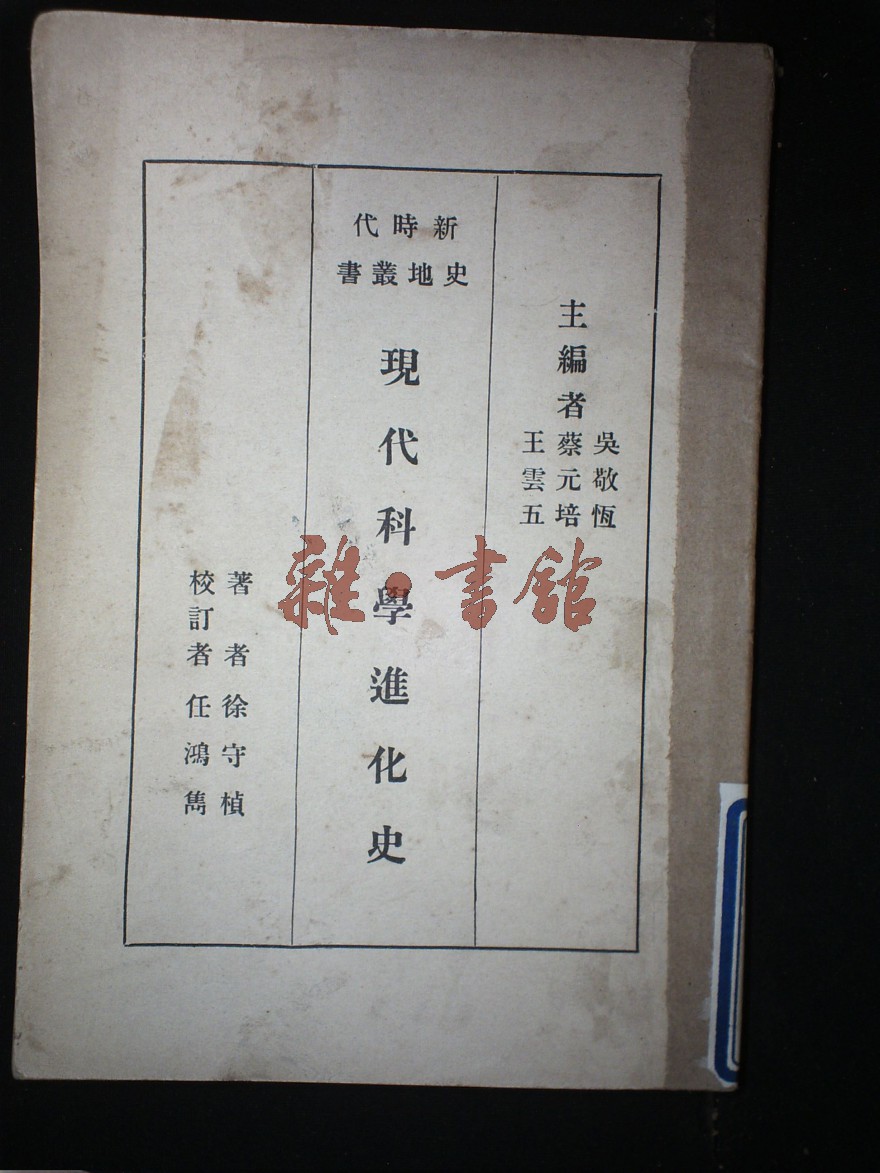 主編者
吳敬恆
蔡元培
王雲五
新時代
史地叢書
現代科學進化史
著者徐守楨
校訂者任鴻雋
雜·書館